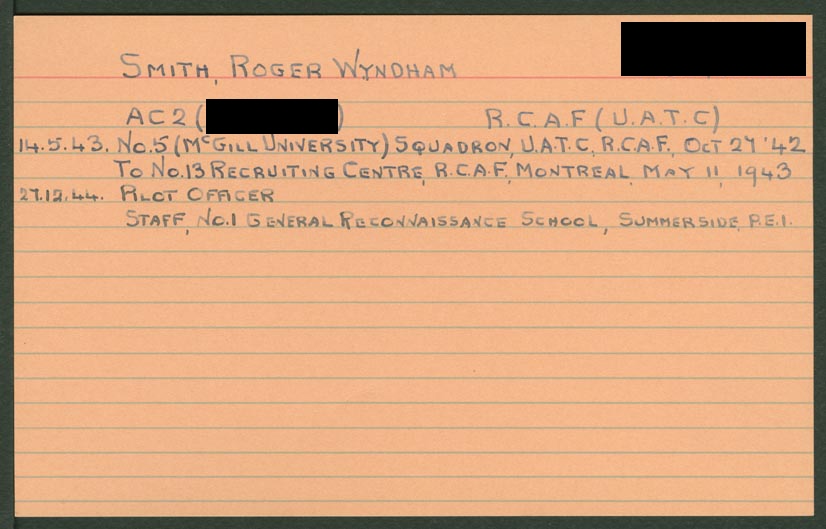 SMITH, ROGER WYNDHAM
AC2 ( ) R.C.A.F (U.A.T.C)
14.5.43. No.5 (McGILL UNIVERSITY) SQUADRON, U.A.T.C, R.C.A.F., OCT 27 '42
TO No.13 RECRUITING CENTRE, R.C.A.F, MONTREAL, MAY 11, 1943
27.12.44. PILOT OFFICER
STAFF, No.1 GENERAL RECONNAISSANCE SCHOOL, SUMMERSIDE, P.E.I.